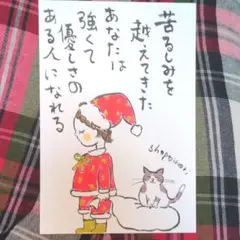 苦るしみを
越えてきた
あなたは
強くて
優しさの
ある人になれる